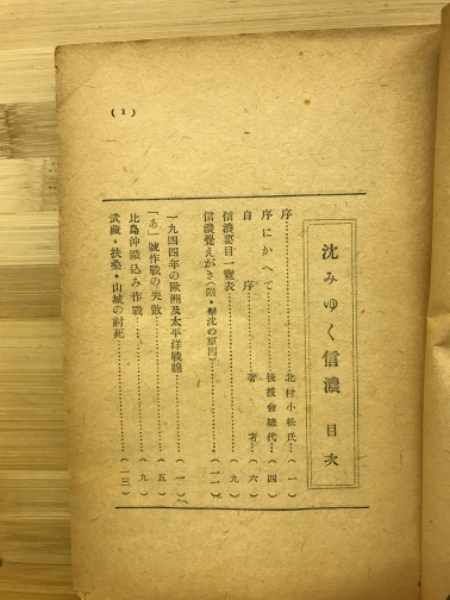 沈みゆく信濃 目次
序……………………北村小松氏…(一)
序にかへて……………後援會總代…(四)
自序……………………著者…(六)
信濃要目一覽表……………………(九)
信濃覺えがき(附・擊沈の原因)……………(一一)
一九四四年の歐洲及太平洋戰線……………(一)
「あ」號作戰の失敗……………(五)
比島沖毆込み作戰……………(九)
武藏・扶桑・山城の討死……………(一三)
(1)